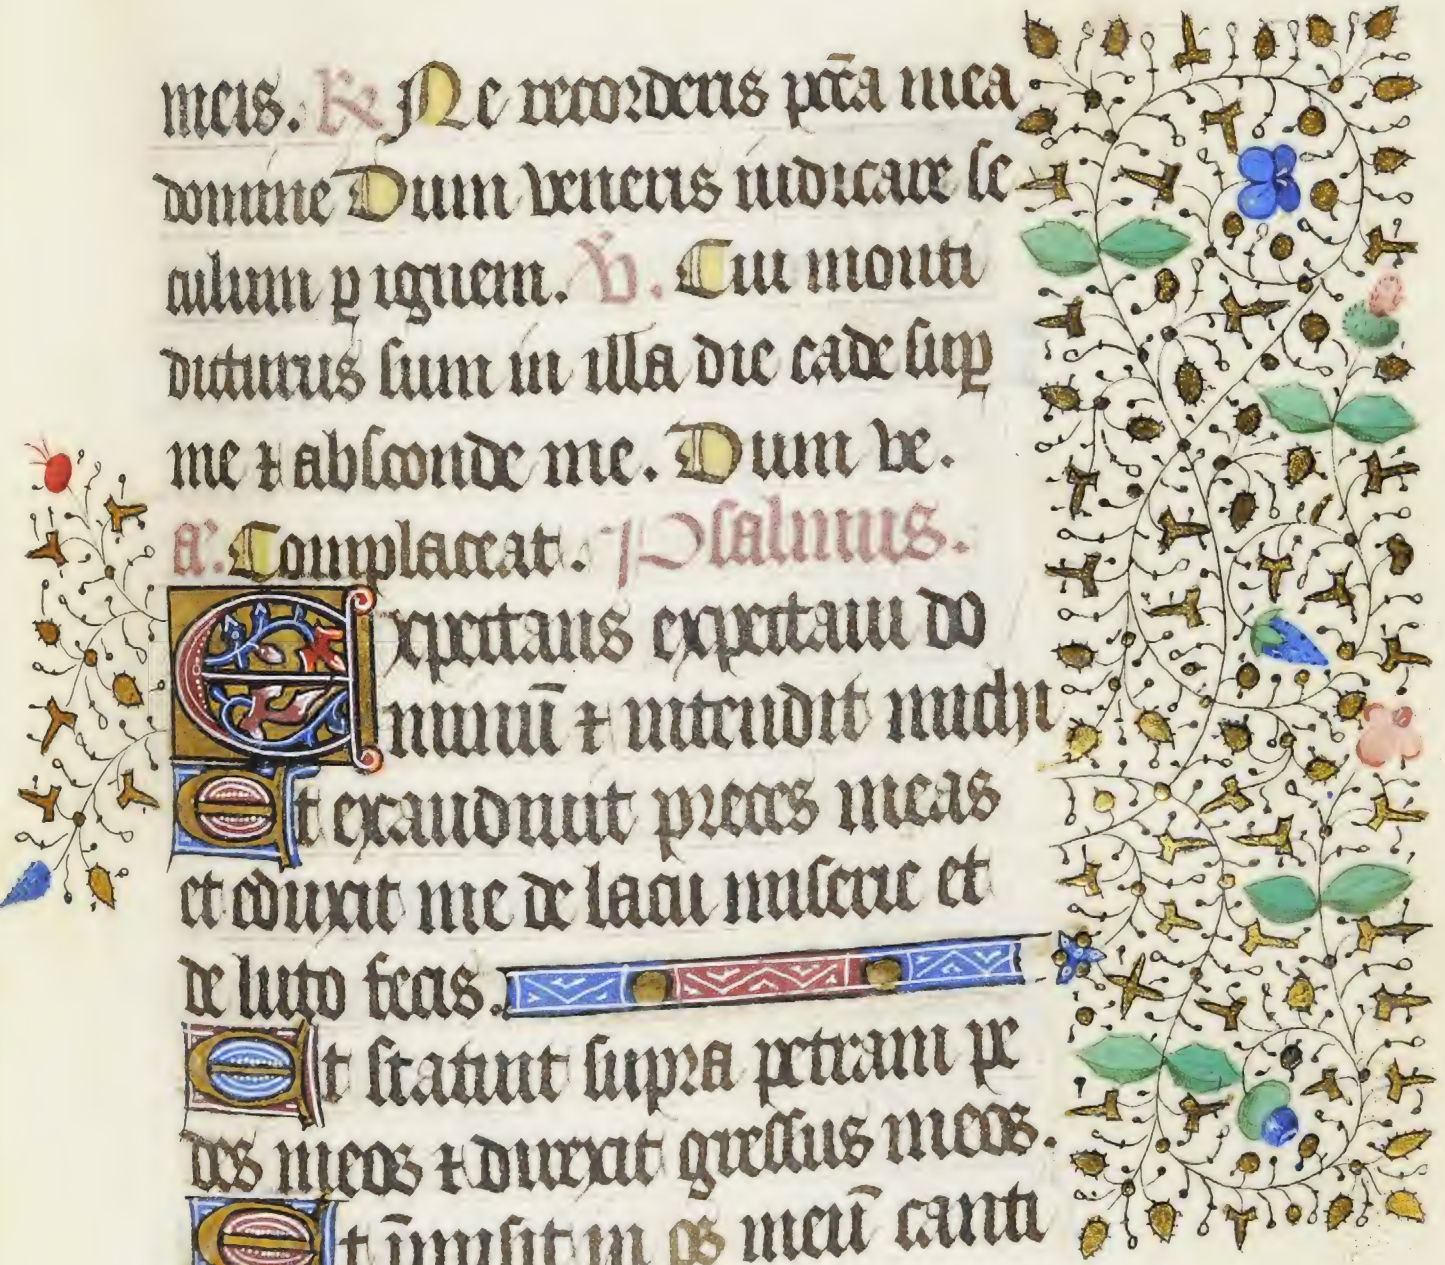 meis. R Ne recorderis pcc̄a mea
domine Dum veneris iudicare se
culum ꝑ ignem. V. Cui monti
dicturus sum in illa die cade suꝑ
me ⁊ absconde me. Dum ve.
a. Complaceat. Psalmus.
Expectans expectaui do
minuū ⁊ intendit michi
Et exaudiuit preces meas
et eduxit me de lacu miserie et
de luto fecis.
Et statuit supra petram pe
des meos ⁊ direxit gressus meos.
Et īmisit in os meū canti